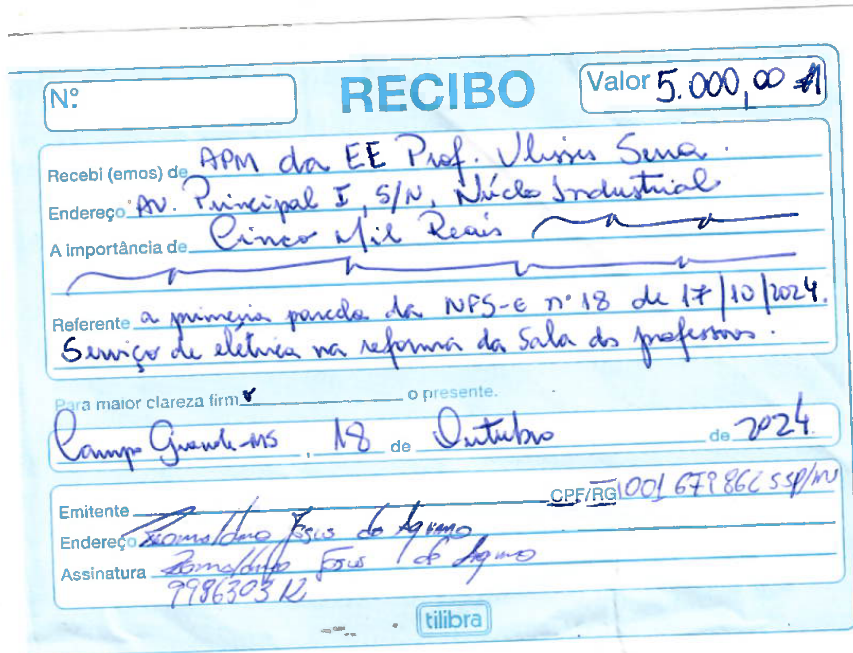 Nº
RECIBO
Valor 5.000,00
Recebi (emos) de APM da EE Prof. Ulisses Serra.
Endereço AV. Principal I, S/N, Núcleo Industrial
A importância de Cinco Mil Reais
Referente a primeira parcela da NFS-e nº 18 de 17/10/2024.
Serviço de elétrica na reforma da Sala dos professores.
Para maior clareza firm o presente.
Campo Grande-MS, 18 de Outubro de 2024
Emitente CPF/RG 001 679 862 SSP/MS
Endereço Jesus de Aquino
Assinatura Jesus de Aquino
tilibra